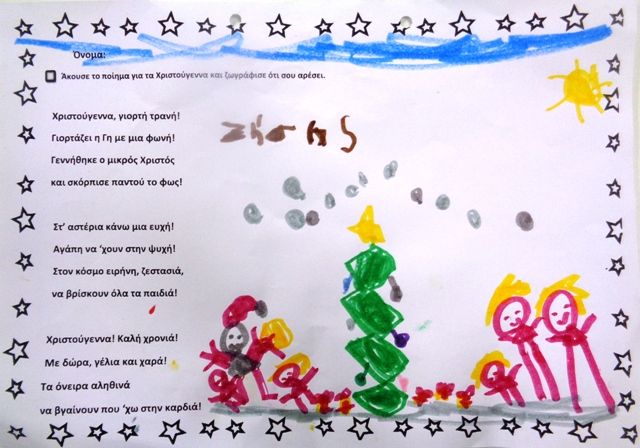 Όνομα:
Άκουσε το ποίημα για τα Χριστούγεννα και ζωγράφισε ότι σου αρέσει.
Χριστούγεννα, γιορτή τρανή!
Γιορτάζει η Γη με μια φωνή!
Γεννήθηκε ο μικρός Χριστός
και σκόρπισε παντού το φως!
Στ’ αστέρια κάνω μια ευχή!
Αγάπη να ‘χουν στην ψυχή!
Στον κόσμο ειρήνη, ζεστασιά,
να βρίσκουν όλα τα παιδιά!
Χριστούγεννα! Καλή χρονιά!
Με δώρα, γέλια και χαρά!
Τα όνειρα αληθινά
να βγαίνουν που ‘χω στην καρδιά!